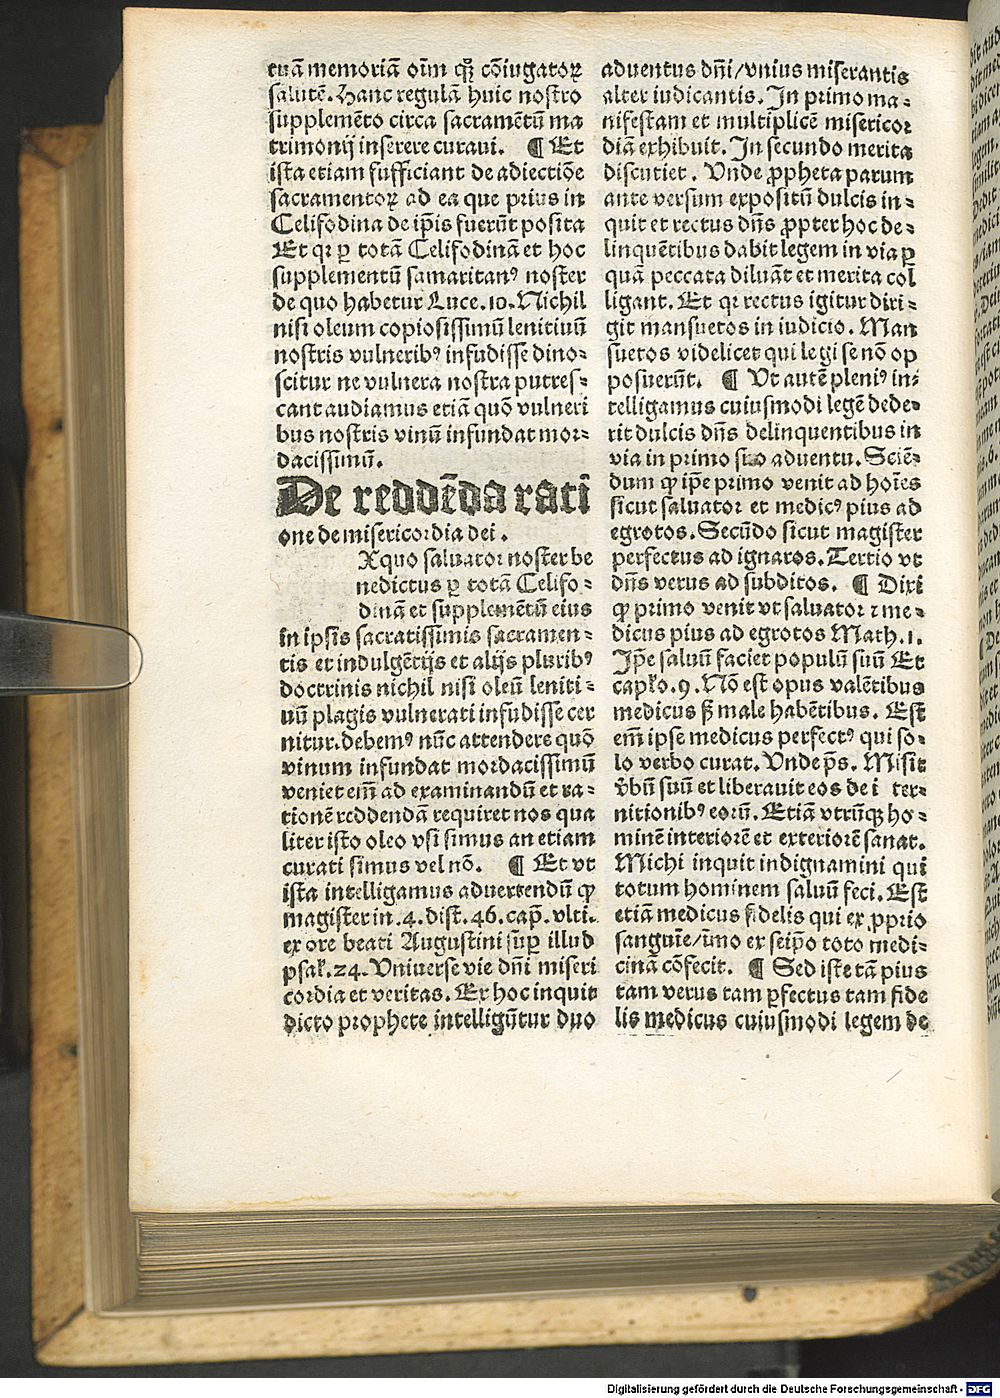 tuā memoriā oīm qꝫ cōiugatoꝝ
salutē. Hanc regulā huic nostro
supplemēto circa sacramētū ma
trimonij inserere curaui. ¶ Et
ista etiam sufficiant de adiectiōe
sacramentoꝝ ad ea que prius in
Celifodina de ip̄is fuerūt posita
Et qꝛ ꝑ totā Celifodinā et hoc
supplementū samaritanꝰ noster
de quo habetur Luce.10. Nichil
nisi oleum copiosissimū lenitiuū
nostris vulneribꝰ infudisse dino⸗
scitur ne vulnera nostra putres⸗
cant audiamus etiā quō vulneri
bus nostris vinū infundat mor⸗
dacissimū.
De reddēda rati
one de misericordia dei.
Xquo saluator noster be
nedictus ꝑ totā Celifo⸗
dinā et supplemētū eius
in ipsis sacratissimis sacramen⸗
tis et indulgētijs et alijs pluribꝰ
doctrinis nichil nisi oleū leniti⸗
uū plagis vulnerati infudisse cer
nitur. debemꝰ nūc attendere quō
vinum infundat mordacissimū
veniet em̄ ad examinandū et ra⸗
tionē reddendā requiret nos qua
liter isto oleo vsi simus an etiam
curati simus vel nō. ¶ Et vt
ista intelligamus aduertendū ꝙ
magister in .4. dist. 46. cap̄. vlti.
ex ore beati Augustini sup̄ illud
psal.24. Vniuerse vie dn̄i miseri
cordia et veritas. Ex hoc inquit
dicto prophete intelligūtur duo
aduentus dn̄i/vnius miserantis
alter iudicantis. In primo ma⸗
nifestam et multiplicē misericor
diā exhibuit. In secundo merita
discutiet. Vnde ꝓpheta parum
ante versum expositū dulcis in⸗
quit et rectus dn̄s ꝓpter hoc de⸗
linquētibus dabit legem in via ꝑ
quā peccata diluāt et merita col
ligant. Et qꝛ rectus igitur diri⸗
git mansuetos in iudicio. Man
suetos videlicet qui legi se nō op
posuerūt. ¶ Ut autē pleniꝰ in⸗
telligamus cuiusmodi legē dede⸗
rit dulcis dn̄s delinquentibus in
via in primo suo aduentu. Sciē⸗
dum ꝙ ip̄e primo venit ad hoīes
sicut saluator et medicꝰ pius ad
egrotos. Secūdo sicut magister
perfectus ad ignaros. Tertio vt
dn̄s verus ad subditos. ¶ Dixi
ꝙ primo venit vt saluator ꝛ me⸗
dicus pius ad egrotos Math.1.
Ip̄e saluū faciet populū suū Et
cap̄lo.9. Nō est opus valētibus
medicus ꝭ male habētibus. Est
em̄ ipse medicus perfectꝰ qui so⸗
lo verbo curat. Vnde p̄s. Misit
v̄bū suū et liberauit eos de i ter⸗
nitionibꝰ eorū. Etiā vtrūqꝫ ho⸗
minē interiorē et exteriorē sanat.
Michi inquit indignamini qui
totum hominem saluū feci. Est
etiā medicus fidelis qui ex ꝓprio
sanguīe/ūmo ex seip̄o toto medi⸗
cinā cōfecit. ¶ Sed iste tā pius
tam verus tam ꝑfectus tam fide
lis medicus cuiusmodi legem de
Digitalisierung gefördert durch die Deutsche Forschungsgemeinschaft - DFG